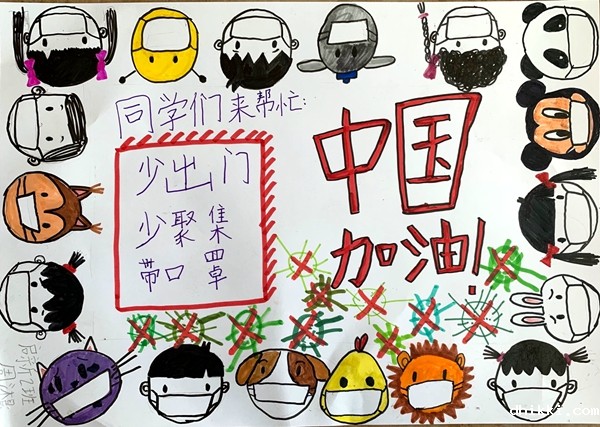 同学们来帮忙:
少出门
少聚集
带口罩
中国
加油!